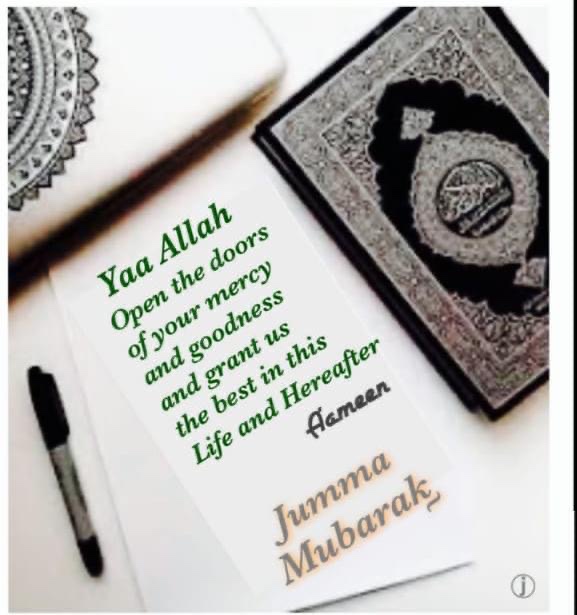 Yaa Allah
Open the doors
of your mercy
and goodness
and grant us
the best in this
Life and Hereafter
Aameen
Jumma
Mubarak~
j